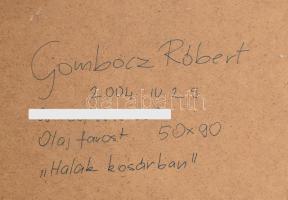 Gömböcz Róbert
2004 IV 29
Olaj farost 50x90
"Halak kosárban"